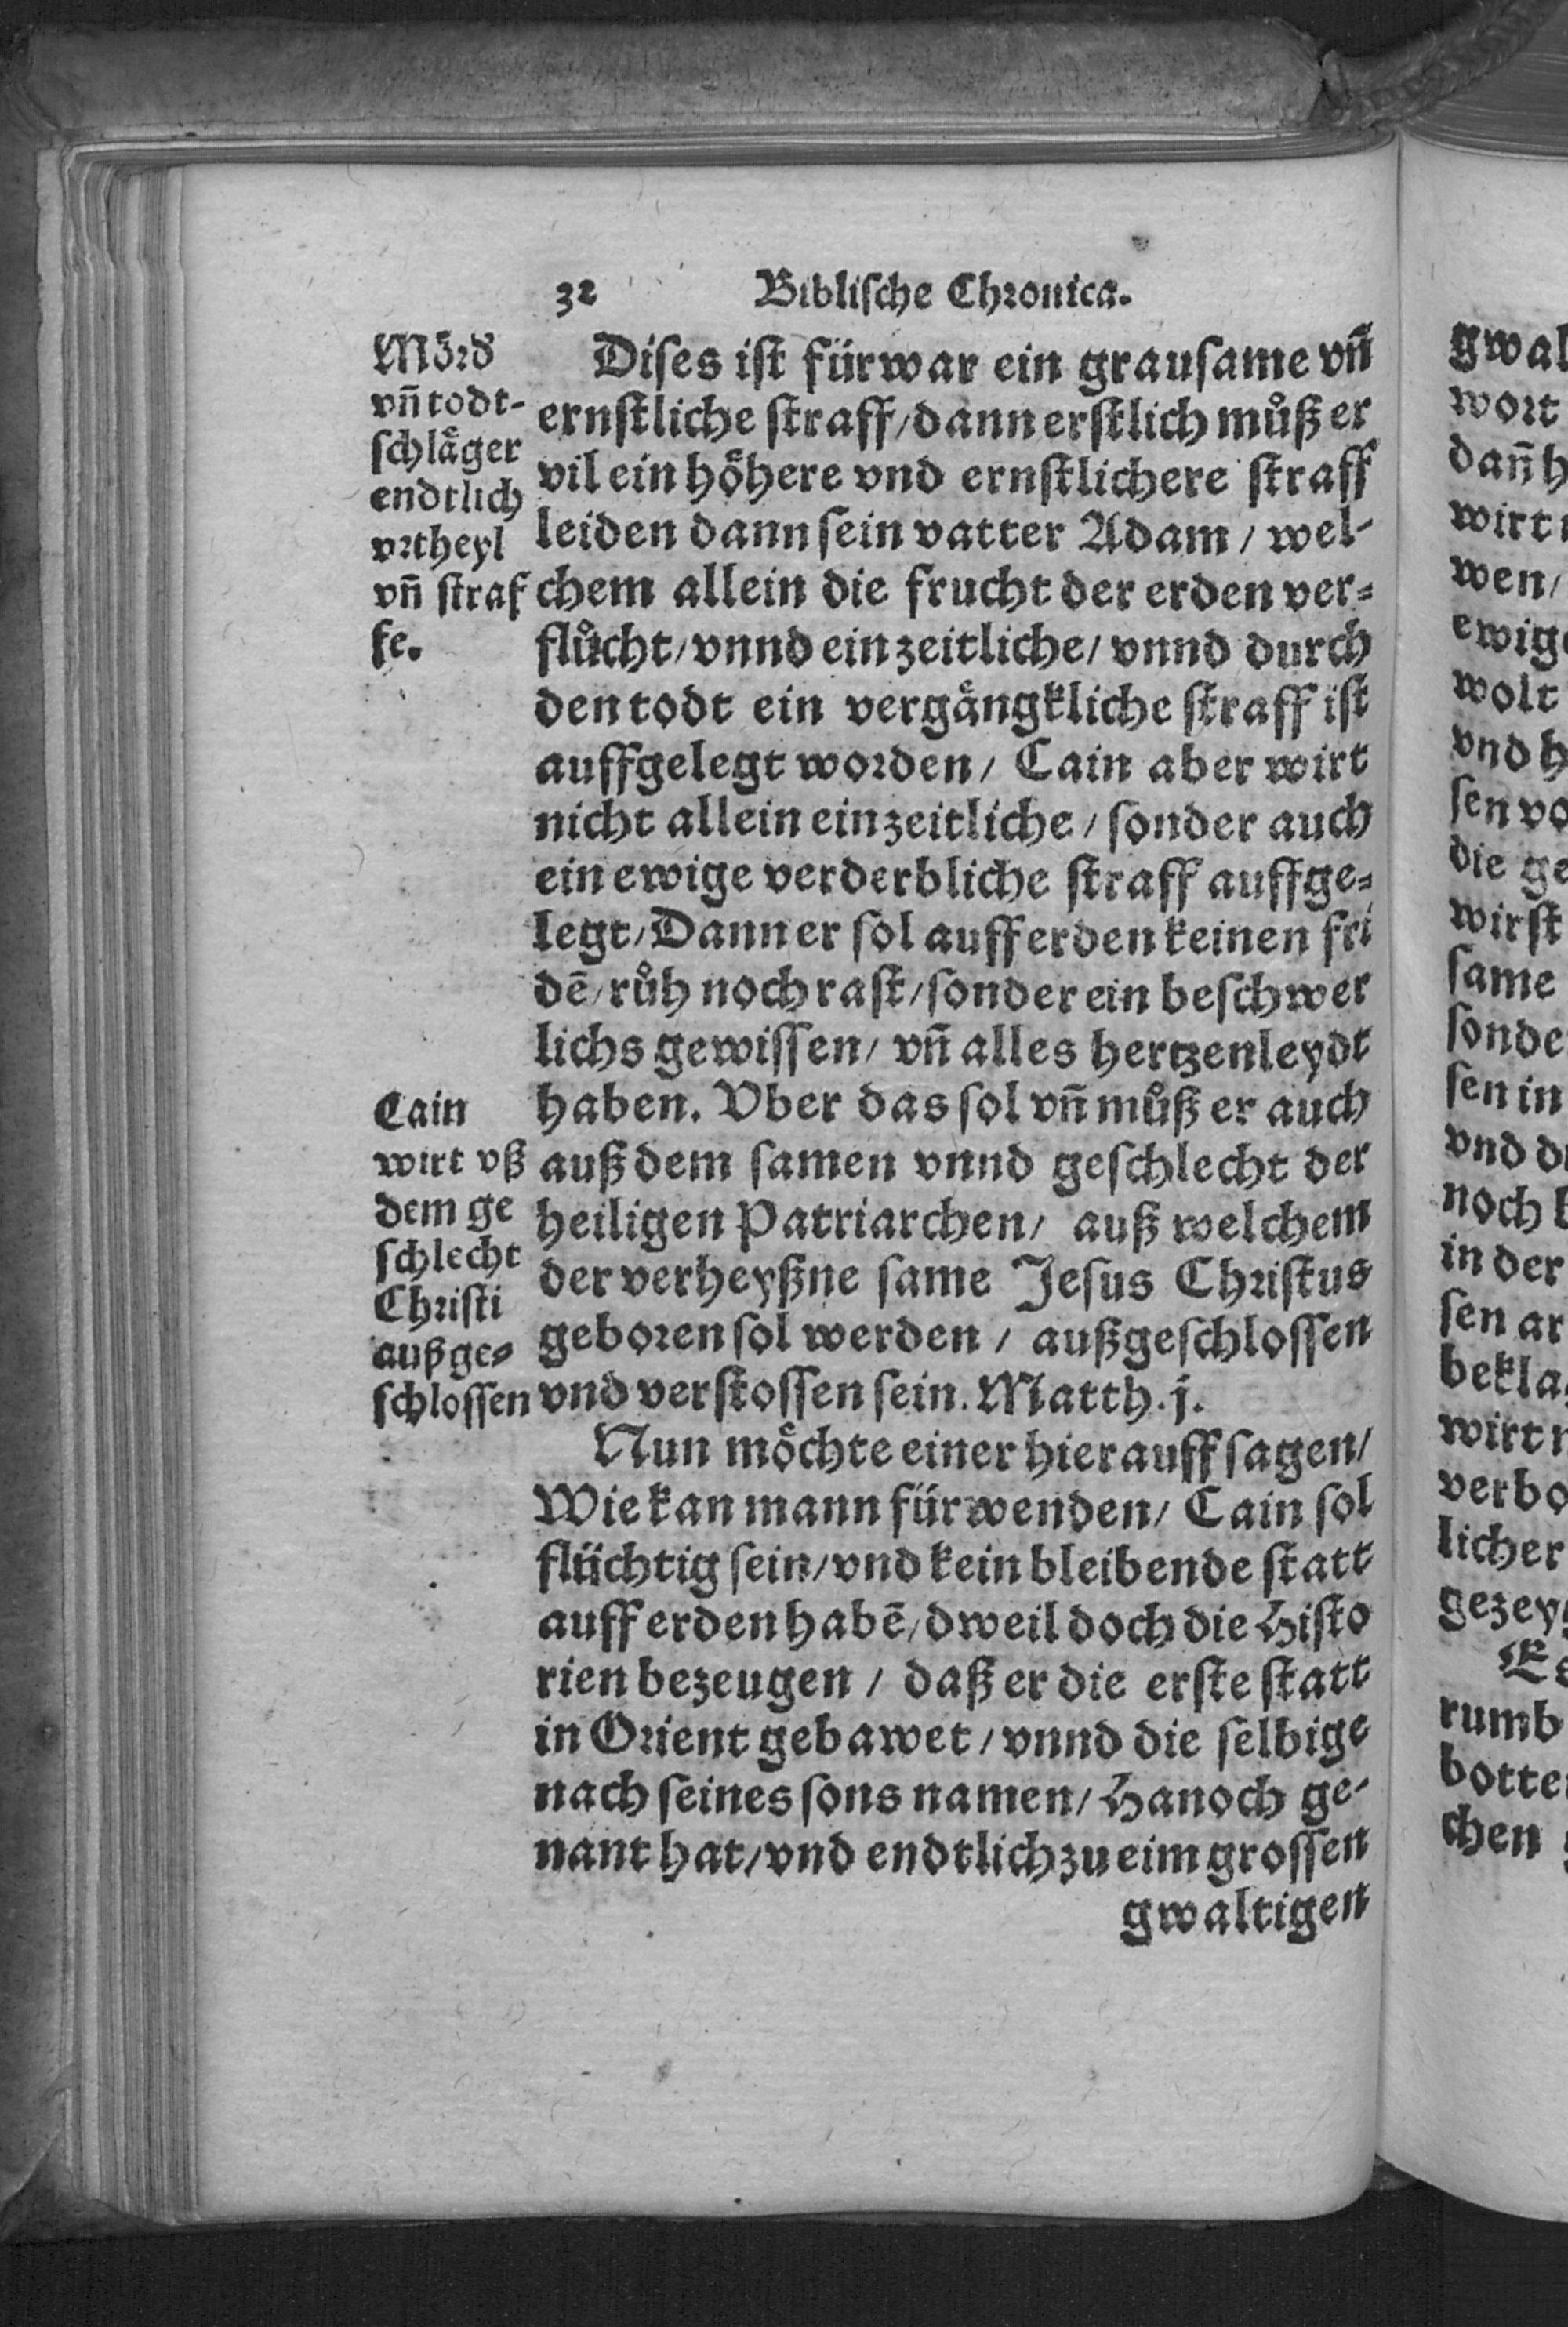 32 Biblische Chronica.
Mörd
vñ todt-
schläger
endtlich
vrtheyl
vñ straf
fe.
Dises ist fürwar ein grausame vñ
ernstliche straff/dann erstlich můß er
vil ein höhere vnd ernstlichere straff
leiden dann sein vatter Adam / wel-
chem allein die frucht der erden ver-
flůcht/vnnd ein zeitliche/ vnnd durch
den todt ein vergängkliche straff ist
auffgelegt worden/ Cain aber wirt
nicht allein ein zeitliche / sonder auch
ein ewige verderbliche straff auffge-
legt/Dann er sol auff erden keinen fri
dē/růh noch rast/sonder ein beschwer
lichs gewissen/ vñ alles hertzenleydt
haben. Vber das sol vñ můß er auch
auß dem samen vnnd geschlecht der
heiligen Patriarchen/ auß welchem
der verheyßne same Jesus Christus
geboren sol werden / außgeschlossen
vnd verstossen sein. Matth. j.
Cain
wirt vß
dem ge
schlecht
Christi
außge-
schlossen
Nun möchte einer hierauff sagen/
Wie kan mann fürwenden/ Cain sol
flüchtig sein/vnd kein bleibende statt
auff erden habē/dweil doch die Histo
rien bezeugen / daß er die erste statt
in Orient gebawet/vnnd die selbige
nach seines sons namen/Hanoch ge-
nant hat/vnd endtlich zu eim grossen
gwaltigen
wort
wen/
wolt
vnd
wirst
same
noch
in der